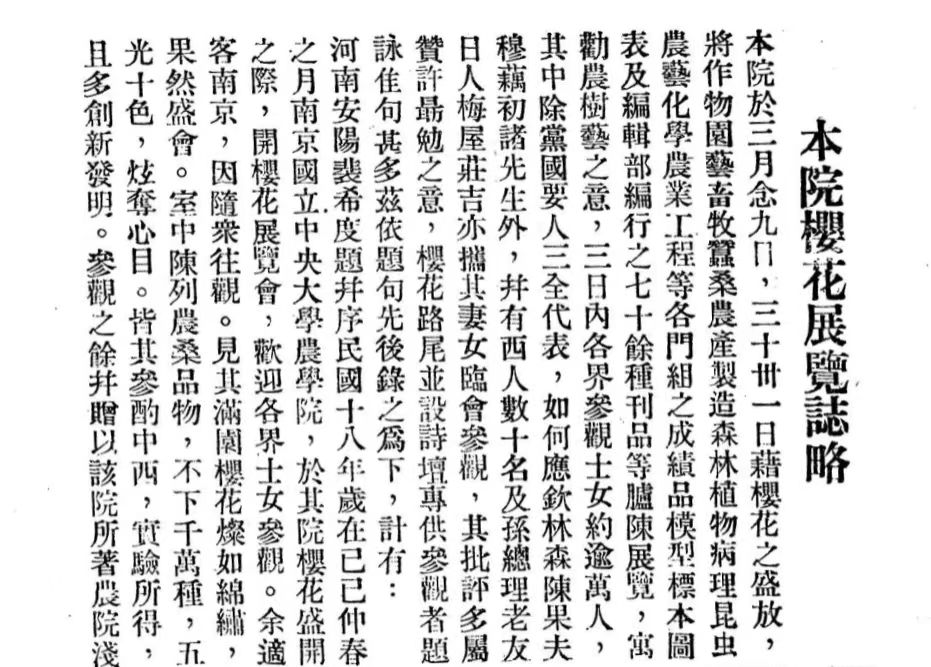 本院櫻花展覽誌略
本院於三月念九日，三十卅一日藉櫻花之盛放，
將作物園藝畜牧蠶桑農產製造森林植物病理昆虫
農藝化學農業工程等各門組之成績品模型標本圖
表及編輯部編行之七十餘種刊品等臚陳展覽，寓
勸農樹藝之意，三日內各界參觀士女約逾萬人，
其中除黨國要人三全代表，如何應欽林森陳果夫
穆藕初諸先生外，幷有西人數十名及孫總理老友
日人梅屋莊吉亦攜其妻女臨會參觀，其批評多屬
贊許勗勉之意，櫻花路尾並設詩壇專供參觀者題
詠佳句甚多茲依題句先後錄之爲下，計有：
河南安陽裴希度題幷序民國十八年歲在己巳仲春
之月南京國立中央大學農學院，於其院櫻花盛開
之際，開櫻花展覽會，歡迎各界士女參觀。余適
客南京，因隨衆往觀。見其滿園櫻花燦如綿繡，
果然盛會。室中陳列農桑品物，不下千萬種，五
光十色，炫奪心目。皆其參酌中西，實驗所得，
且多創新發明。參觀之餘幷贈以該院所著農院淺